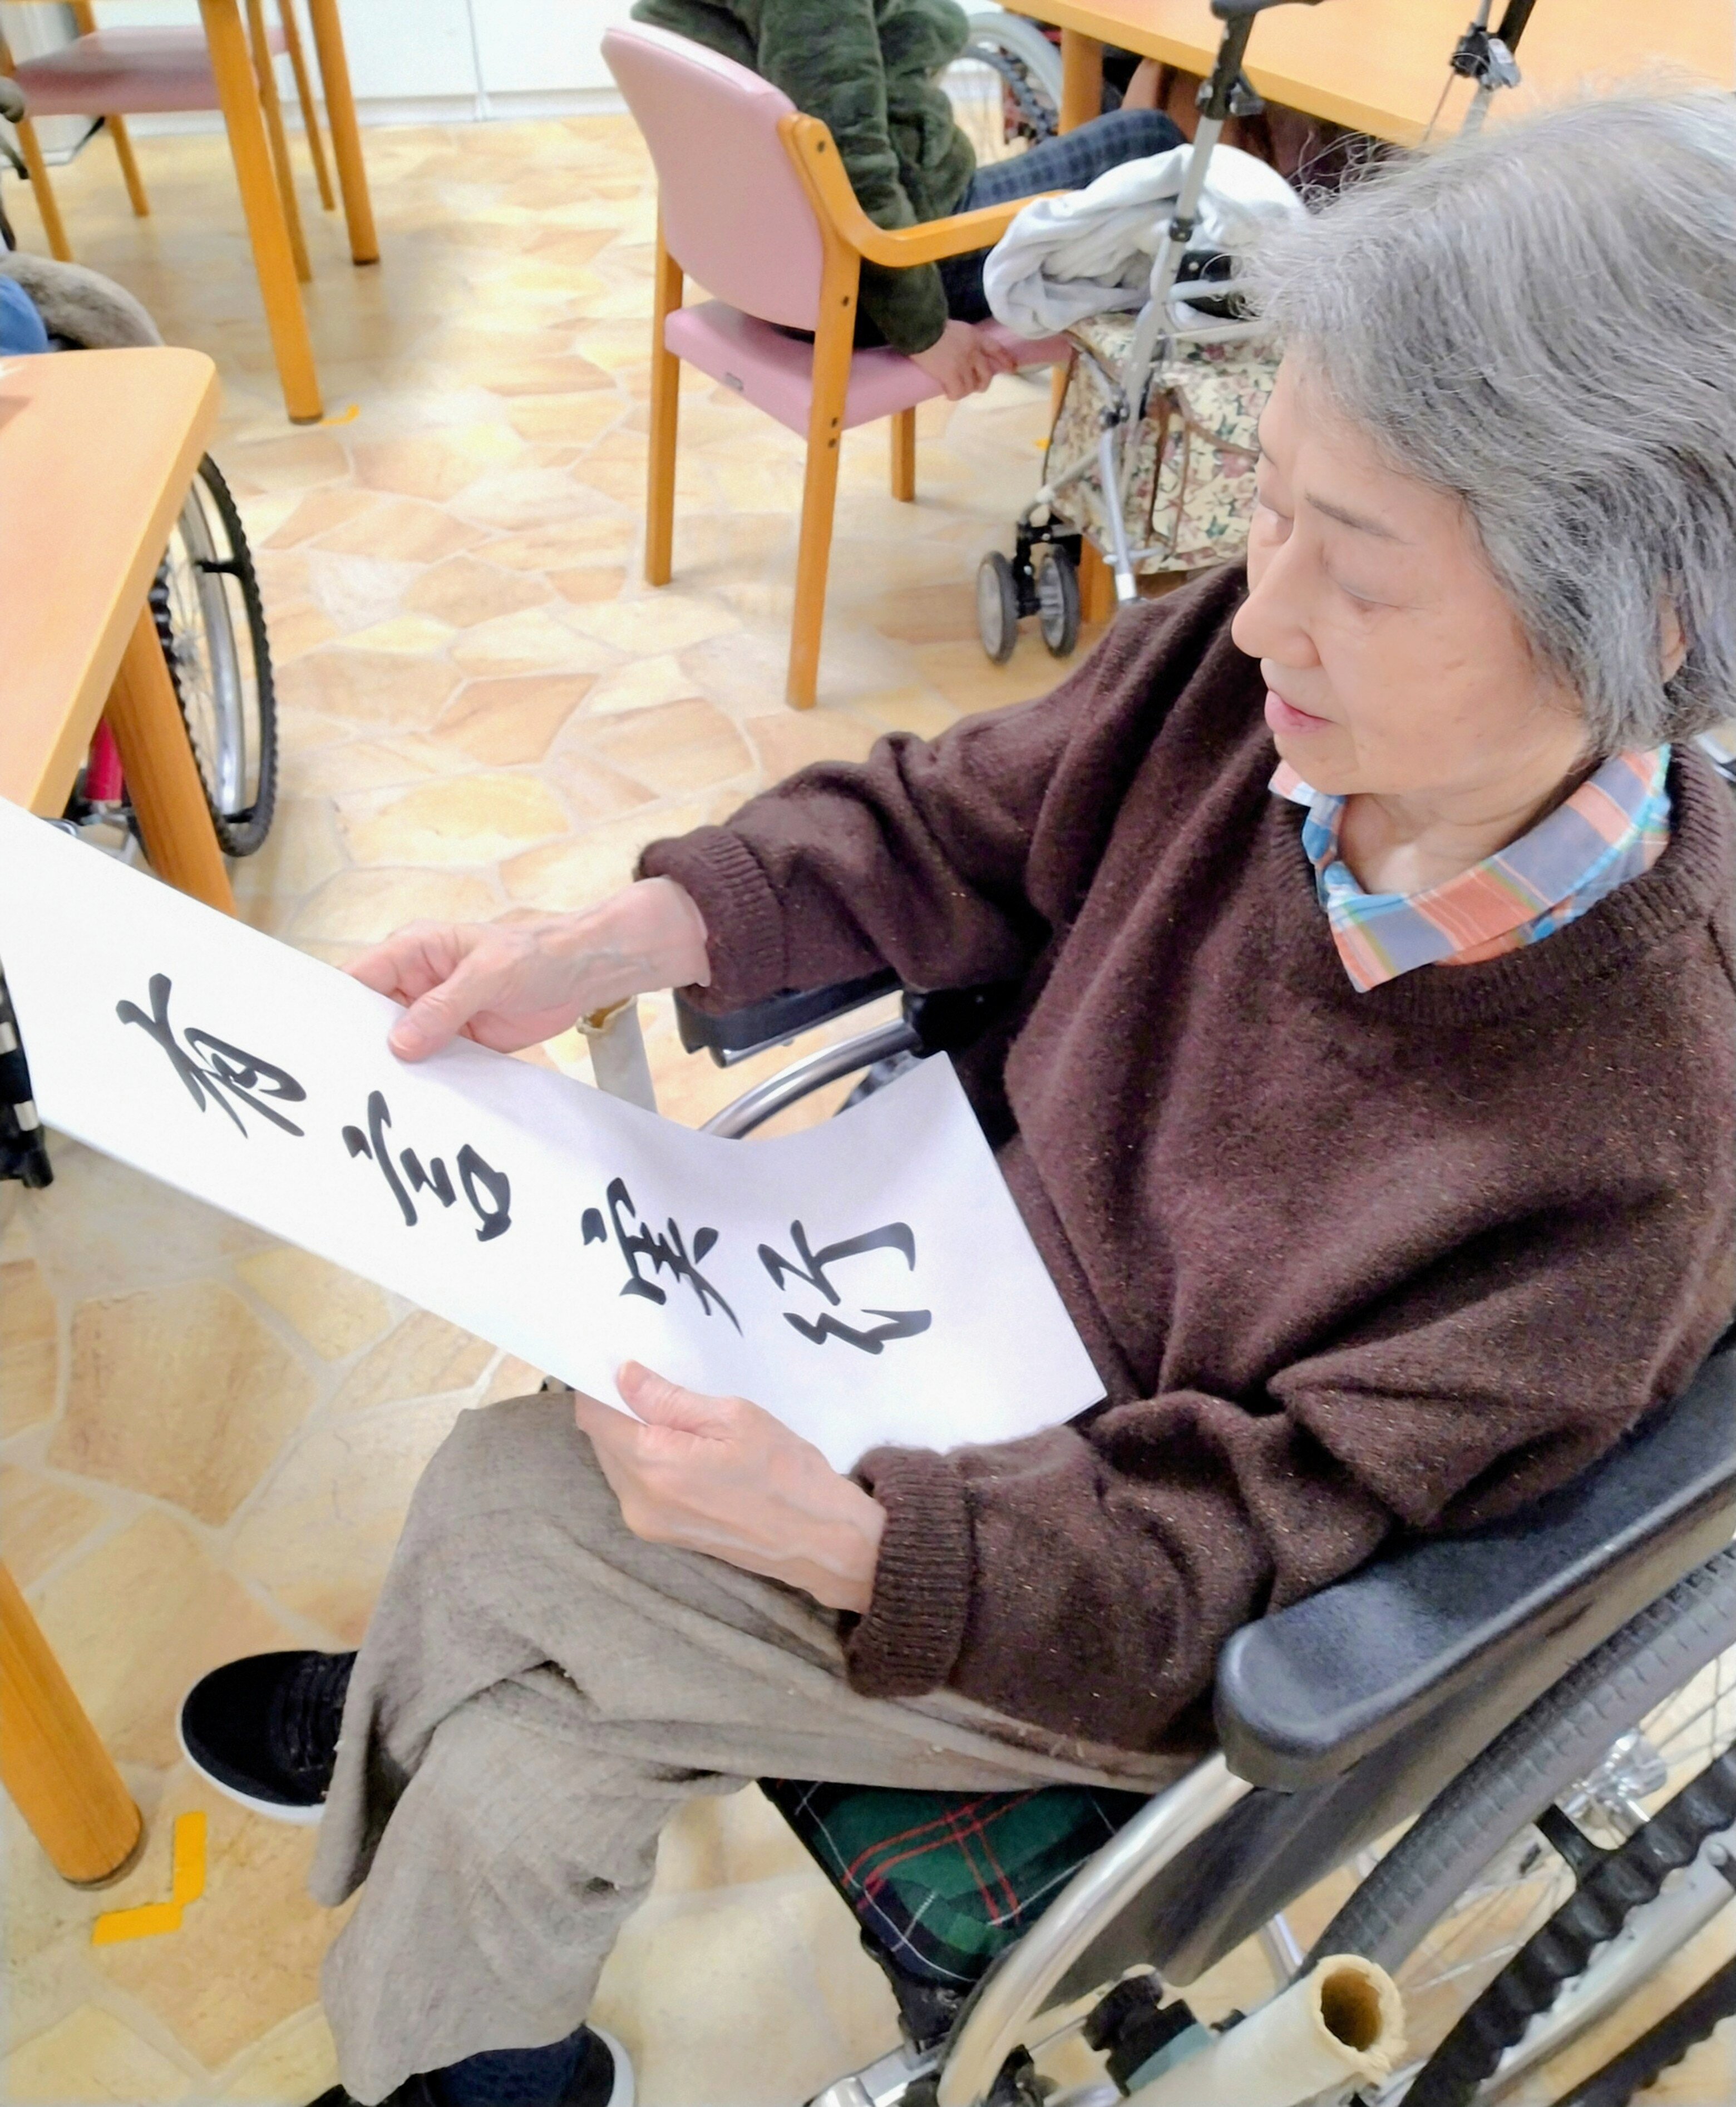 有言実行